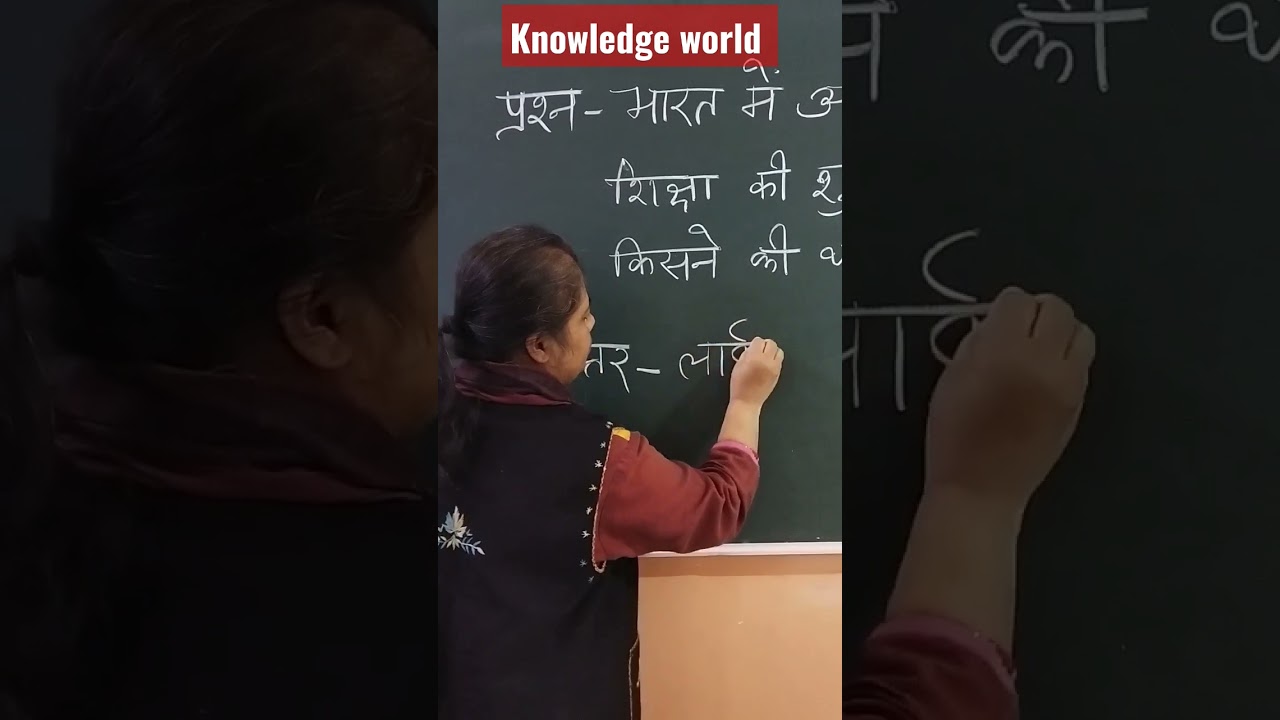 Knowledge world
प्रश्न- भारत में
शिक्षा की
किसने की
उत्तर-